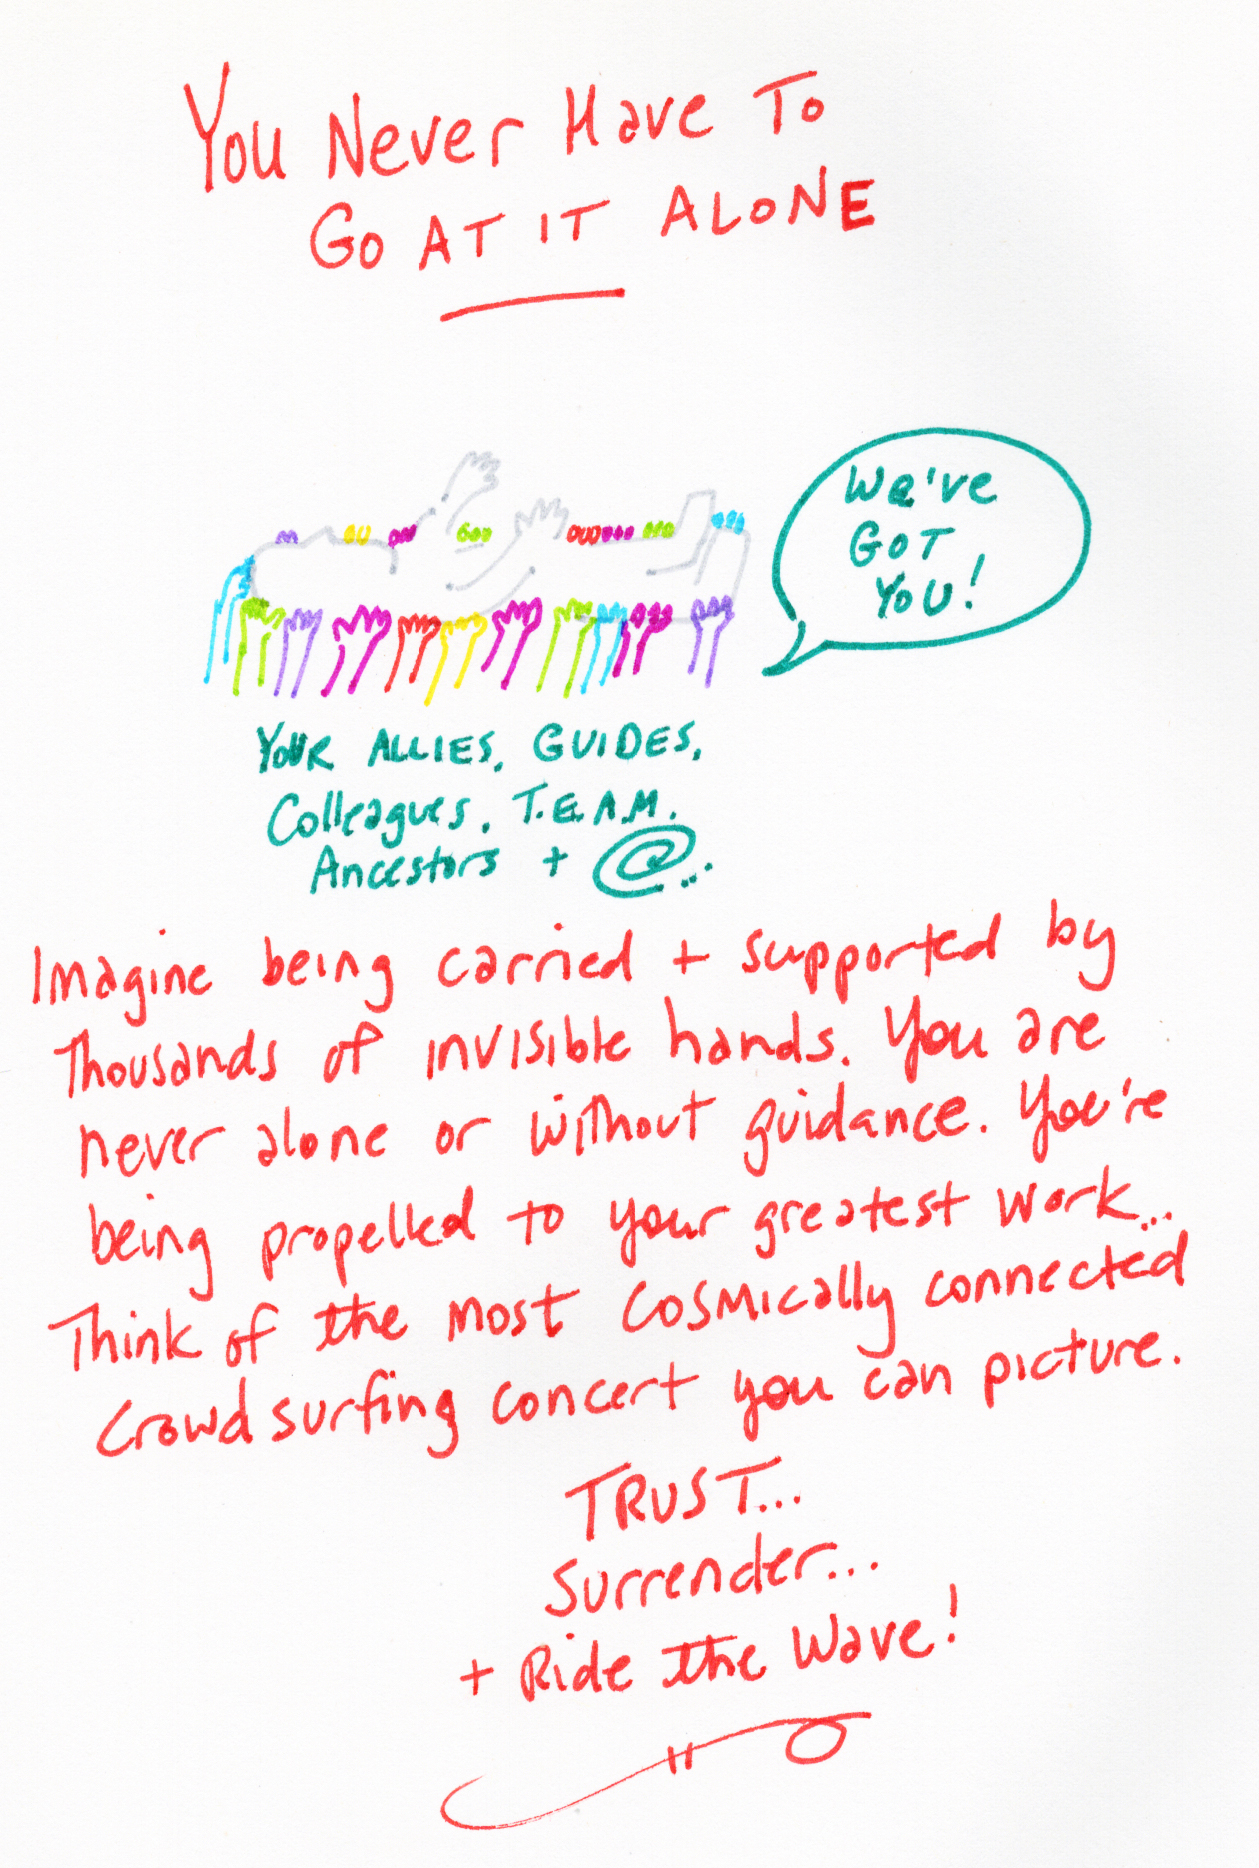 You Never Have To
GO AT IT ALONE
We've
GOT
YOU!
YOUR ALLIES, GUIDES,
Colleagues, T.E.A.M.
Ancestors + @...
Imagine being carried + supported by
Thousands of invisible hands. You are
never alone or without guidance. You're
being propelled to your greatest work...
Think of the most cosmically connected
crowdsurfing concert you can picture.
TRUST...
Surrender...
+ Ride the Wave!